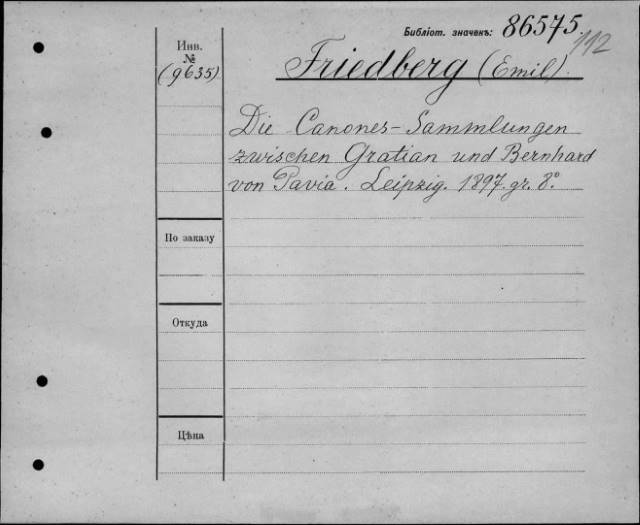 Библіот. значекъ: 86575.
112
Инв.
№
(9635)
Friedberg (Emil).
Die Canones-Sammlungen
zwischen Gratian und Bernhard
von Pavia. Leipzig. 1897. gr. 8°.
По заказу
Откуда
Цѣна